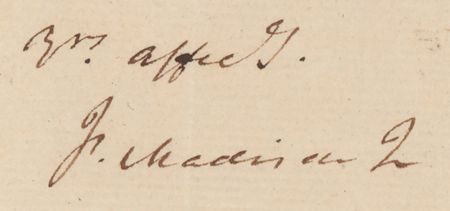 Yrs. affecly.
Js. Madison Jr